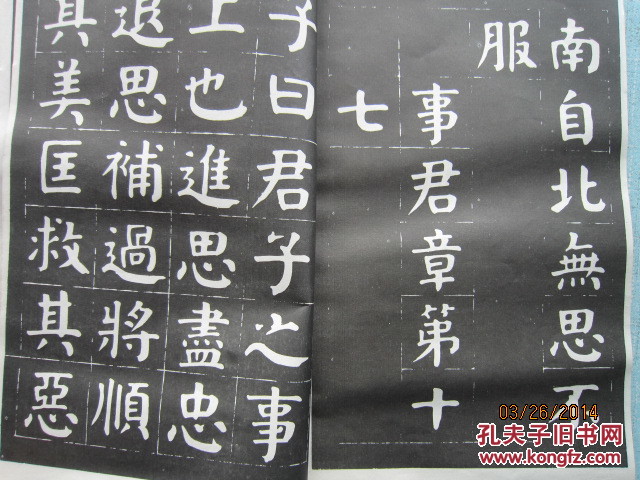 南自北無思不
服
事君章第十
七
子曰君子之事
上也進思盡忠
退思補過將順
其美匡救其惡
03/26/2014
孔夫子旧书网
www.kongfz.com